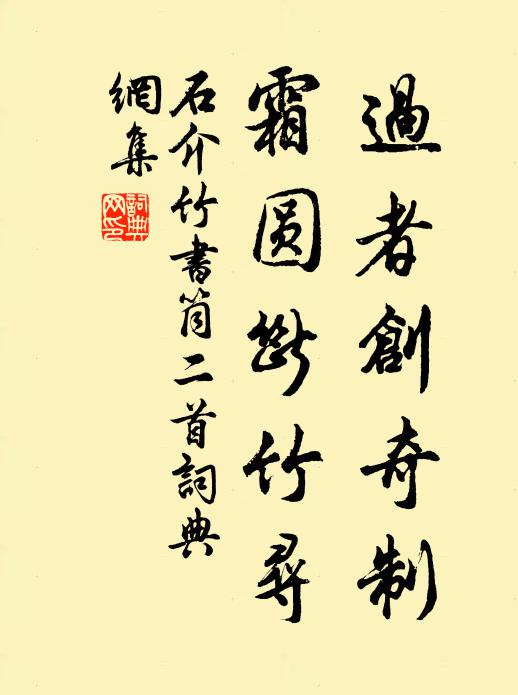 過者創奇制
霜圆斷竹尋
石介竹書筒二首詞典
網集
詞典
网印